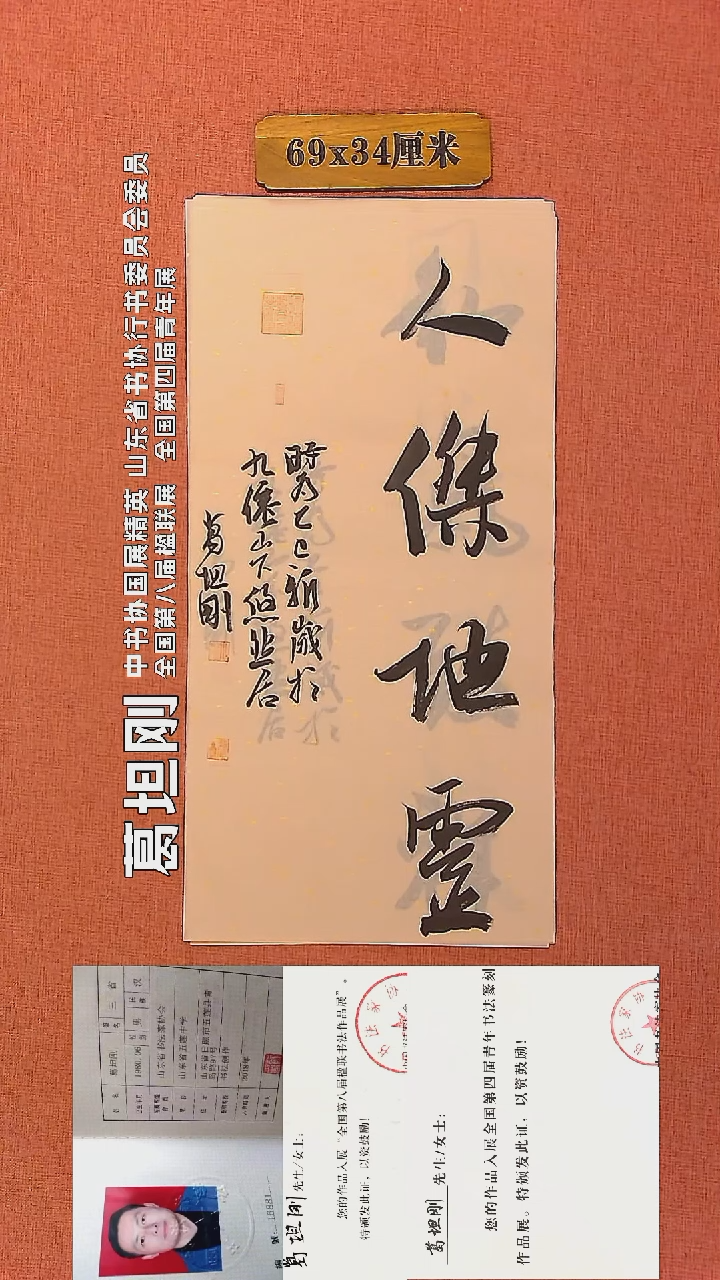 69x34厘米
葛坦刚
中书协国展精英 山东省书协行书委员会委员
全国第八届楹联展 全国第四届青年展
人傑地靈
時爲乙巳新歲於
九僊山下悠然居
葛坦剛
山东省书法家协会
山东省五莲中学
书法创作
葛坦刚 先生/女士:
您的作品入展“全国第八届楹联书法作品展”。
特颁发此证,以资鼓励!
葛坦刚 先生/女士:
您的作品入展全国第四届青年书法篆刻
作品展。特颁发此证,以资鼓励!